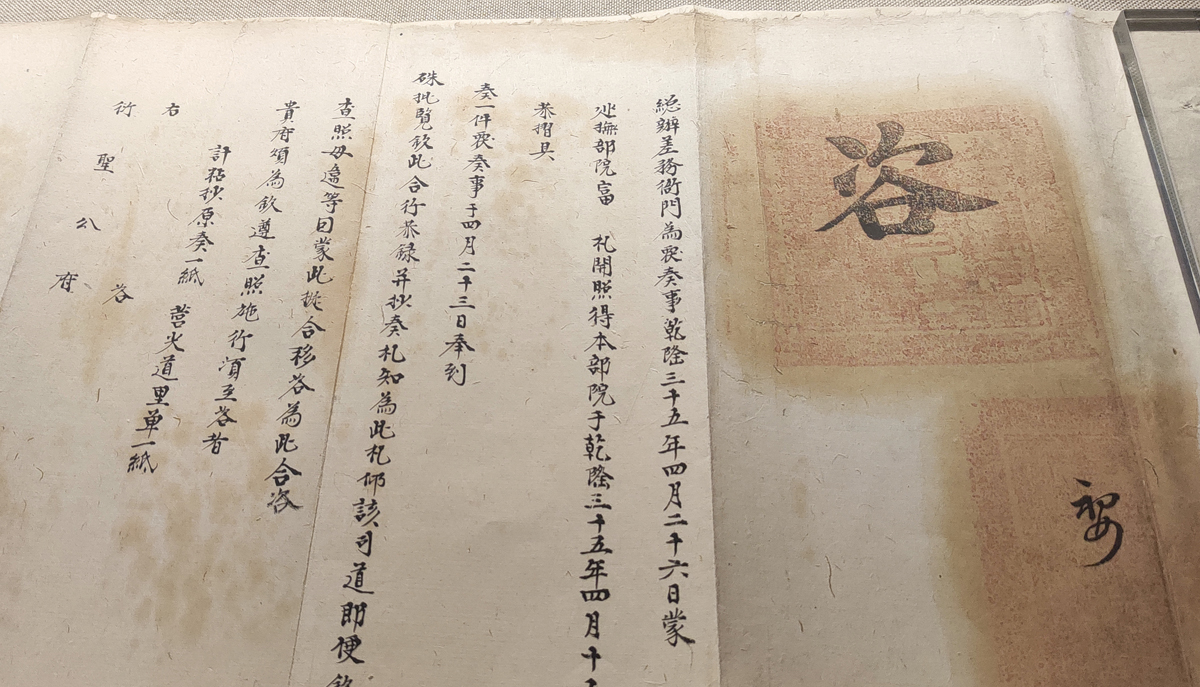 咨
總辦差務衙門為恭奏事乾隆三十五年四月二十六日蒙
巡撫部院富 札開照得本部院于乾隆三十五年四月十
恭摺具
奏一件恭奏事于四月二十三日奉到
硃批覽欽此合行恭錄并抄奏札知為此札仰該司道即便欽
查照毋違等因蒙此擬合移咨為此合咨
貴府煩為欽遵查照施行須至咨者
計粘抄原奏一紙 營火道里单一紙
右 咨
衍聖公府